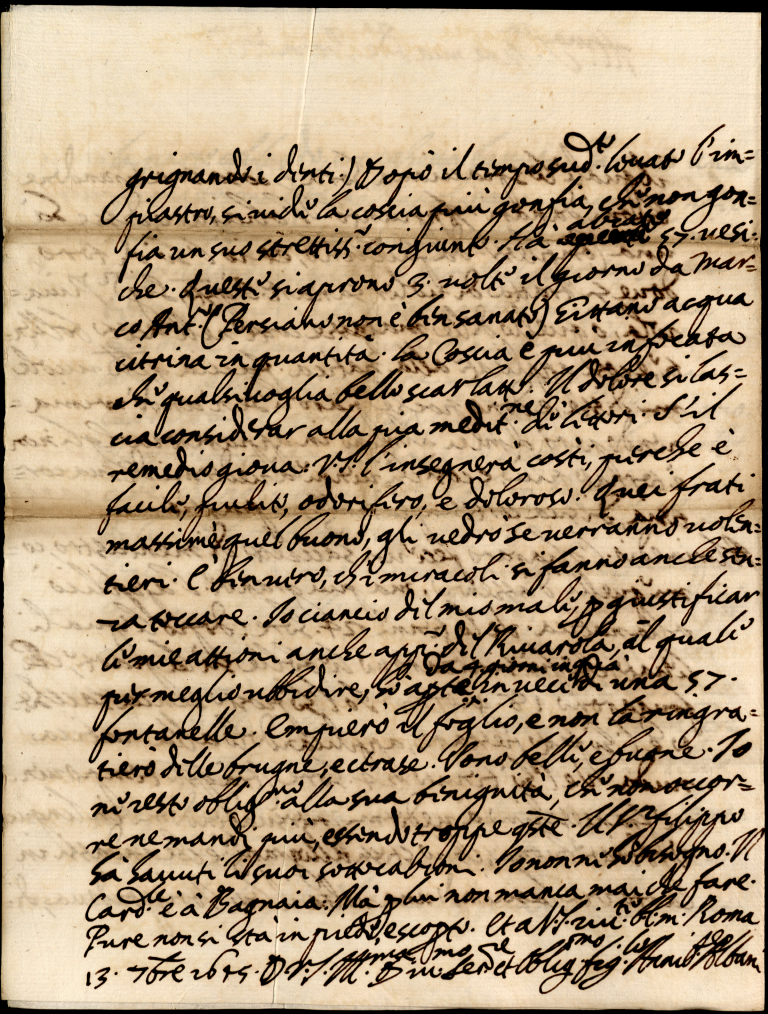 grignando i denti.) Dopò il tempo sud.to levato l'im=
piastro, si vidè la coscia più gonfia, chè non gon=
fia un suo strettiss.o congiunto. Hà alzate 57. vesi=
che. Questè si aprono 3. voltè il giorno da Mar=
co Ant.o (Persiano non è ben sanato) Gittano acqua
citrina in quantità. La Coscia è più infocata
chè qualsivoglia bello scarlatto. Il dolore si las=
cia considerar alla pia medit.ne di littori. S'il
remedio giova. V.S. l'insegnerà costì, perche è
facilè, pulito, odorifero, e doloroso. Quei frati
massimè quel buono, gli vedrò se verranno volen=
tieri. È ben vero, chè miracoli si fanno anche sen=
za toccare. Io ciancio del mio malè, p giustificar
lè mie attioni anche app.o del Rivarola, al qualè
per meglio ubbidire, hò apte da 9 giorni in quà in vece di una 57.
fontanelle. Empuerò il foglio, e non la ringra=
tierò delle brugne, ec trase. Sono bellè, e buone. Io
nè resto oblig.mo alla sua benignità, chè non occor=
re ne mandi più, essendo troppe qste. Il S.r Filippo
hà havuti li suoi sottocalzoni. Io non nè hò bisogno. Il
Card.le è à Bagnaia. Mà p lui non manca mai che fare.
Pure non si stà in piedi, e scopto. Et a V.S. riu.te b.m. Roma
13. 7bre 1645. D V.S. M.